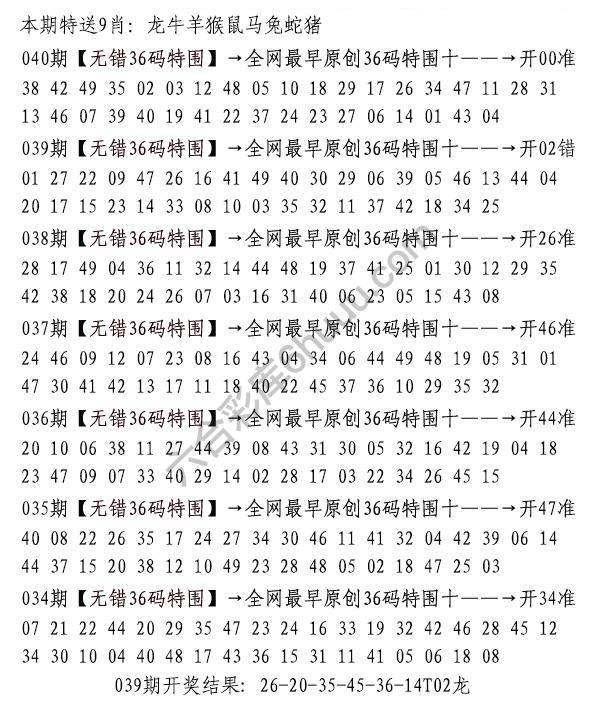 本期特送9肖: 龙牛羊猴鼠马兔蛇猪
040期【无错36码特围】→全网最早原创36码特围十——→开00准
38 42 49 35 02 03 12 48 05 10 18 29 17 26 34 47 11 28 31
13 46 07 39 40 19 41 22 37 24 23 27 06 14 01 43 04
039期【无错36码特围】→全网最早原创36码特围十——→开02错
01 27 22 09 47 26 16 41 49 40 30 29 06 39 05 46 13 44 04
20 17 15 23 14 33 08 10 03 35 32 11 37 42 18 34 25
038期【无错36码特围】→全网最早原创36码特围十——→开26准
28 17 49 04 36 11 32 14 44 48 19 37 41 25 01 30 12 29 35
42 38 18 20 24 26 07 03 16 31 40 06 23 05 15 43 08
037期【无错36码特围】→全网最早原创36码特围十——→开46准
24 46 09 12 07 23 08 16 43 04 34 06 44 49 48 19 05 31 01
47 30 41 42 13 17 11 18 40 22 45 37 36 10 29 35 32
036期【无错36码特围】→全网最早原创36码特围十——→开44准
20 10 06 38 11 27 44 39 08 43 31 30 05 32 16 42 19 04 18
23 47 09 07 33 40 29 14 02 28 17 03 22 34 26 45 15
035期【无错36码特围】→全网最早原创36码特围十——→开47准
40 08 22 26 35 17 24 27 34 30 46 11 41 32 04 42 39 06 14
44 37 15 20 38 12 10 49 23 28 48 05 02 18 47 25 03
034期【无错36码特围】→全网最早原创36码特围十——→开34准
07 21 22 44 20 29 35 47 23 24 16 33 19 32 42 46 28 45 12
34 30 10 04 40 48 17 43 36 15 31 11 41 05 06 18 08
039期开奖结果: 26-20-35-45-36-14T02龙